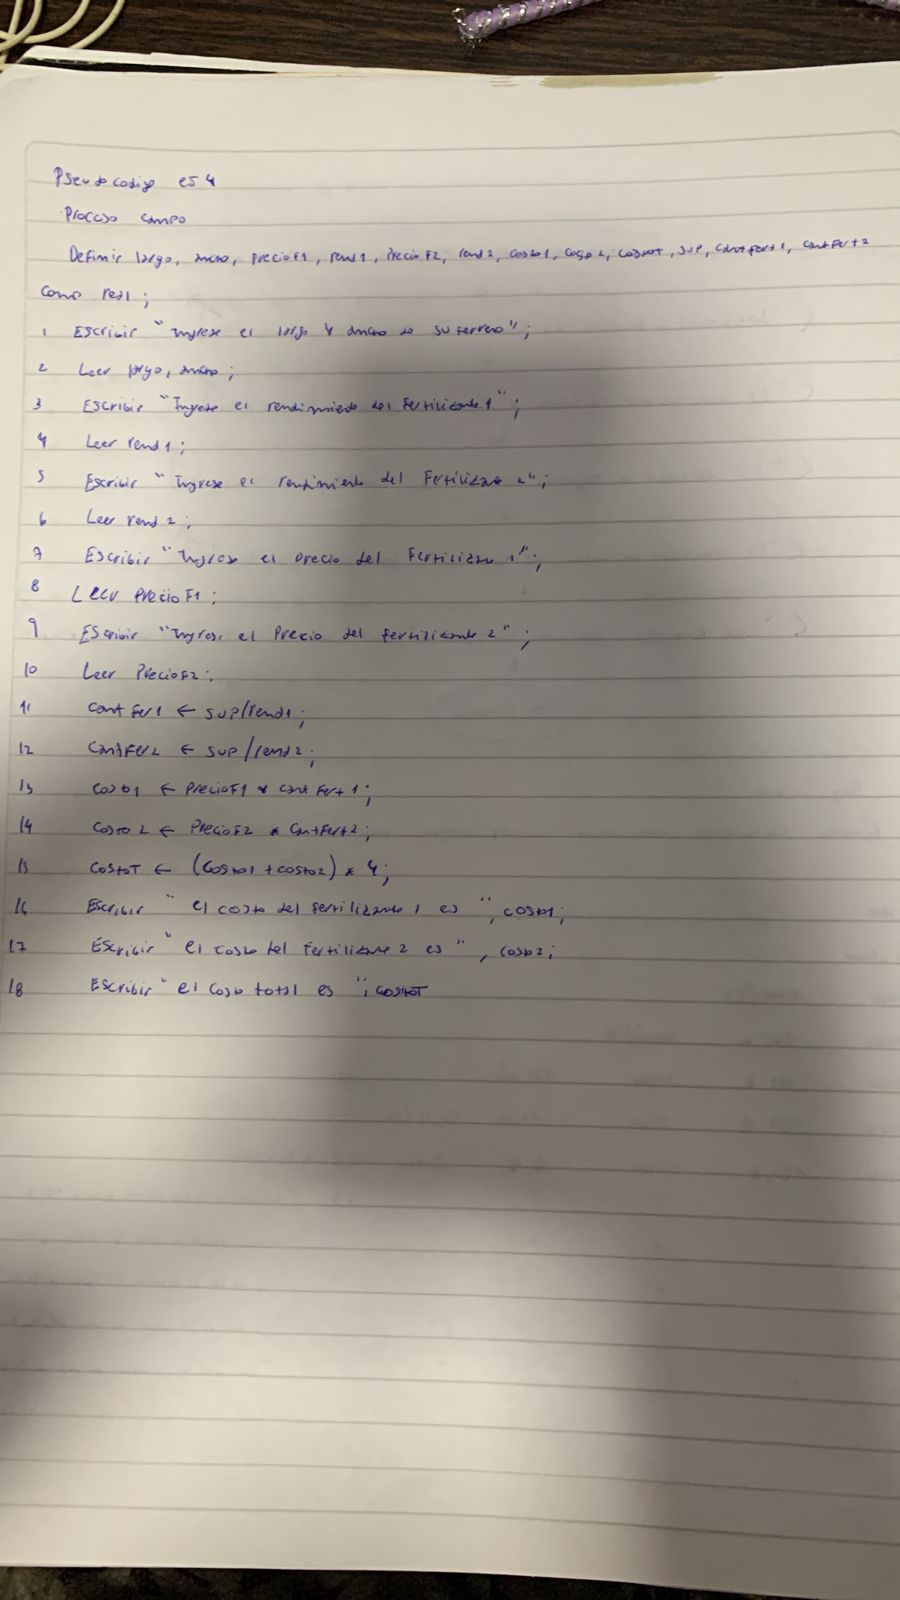 Pseudo codigo es 4
Proceso campo
Definir largo, ancho, precioF1, rend1, PrecioF2, rend2, costo1, costo2, costoT, sup, cantfert1, cantFert2
como real;
1 Escribir "Ingrese el largo y ancho de su terreno";
2 Leer largo, ancho;
3 Escribir "Ingrese el rendimiento del Fertilizante 1";
4 Leer rend1;
5 Escribir "Ingrese el rendimiento del Fertilizante 2";
6 Leer rend2;
7 Escribir "Ingrese el precio del Fertilizante 1";
8 Leer PrecioF1;
9 Escribir "Ingrese el Precio del fertilizante 2";
10 Leer PrecioF2;
11 cant fer1 ← sup/rend1;
12 CantFer2 ← sup/rend2;
13 Costo1 ← PrecioF1 * cant Fert 1;
14 Costo 2 ← PrecioF2 * CantFert2;
15 CostoT ← (Costo1 + costo2) * 4;
16 Escribir "el costo del fertilizante 1 es ", costo1;
17 Escribir "el costo del Fertilizante 2 es ", costo2;
18 Escribir "el costo total es ", costoT